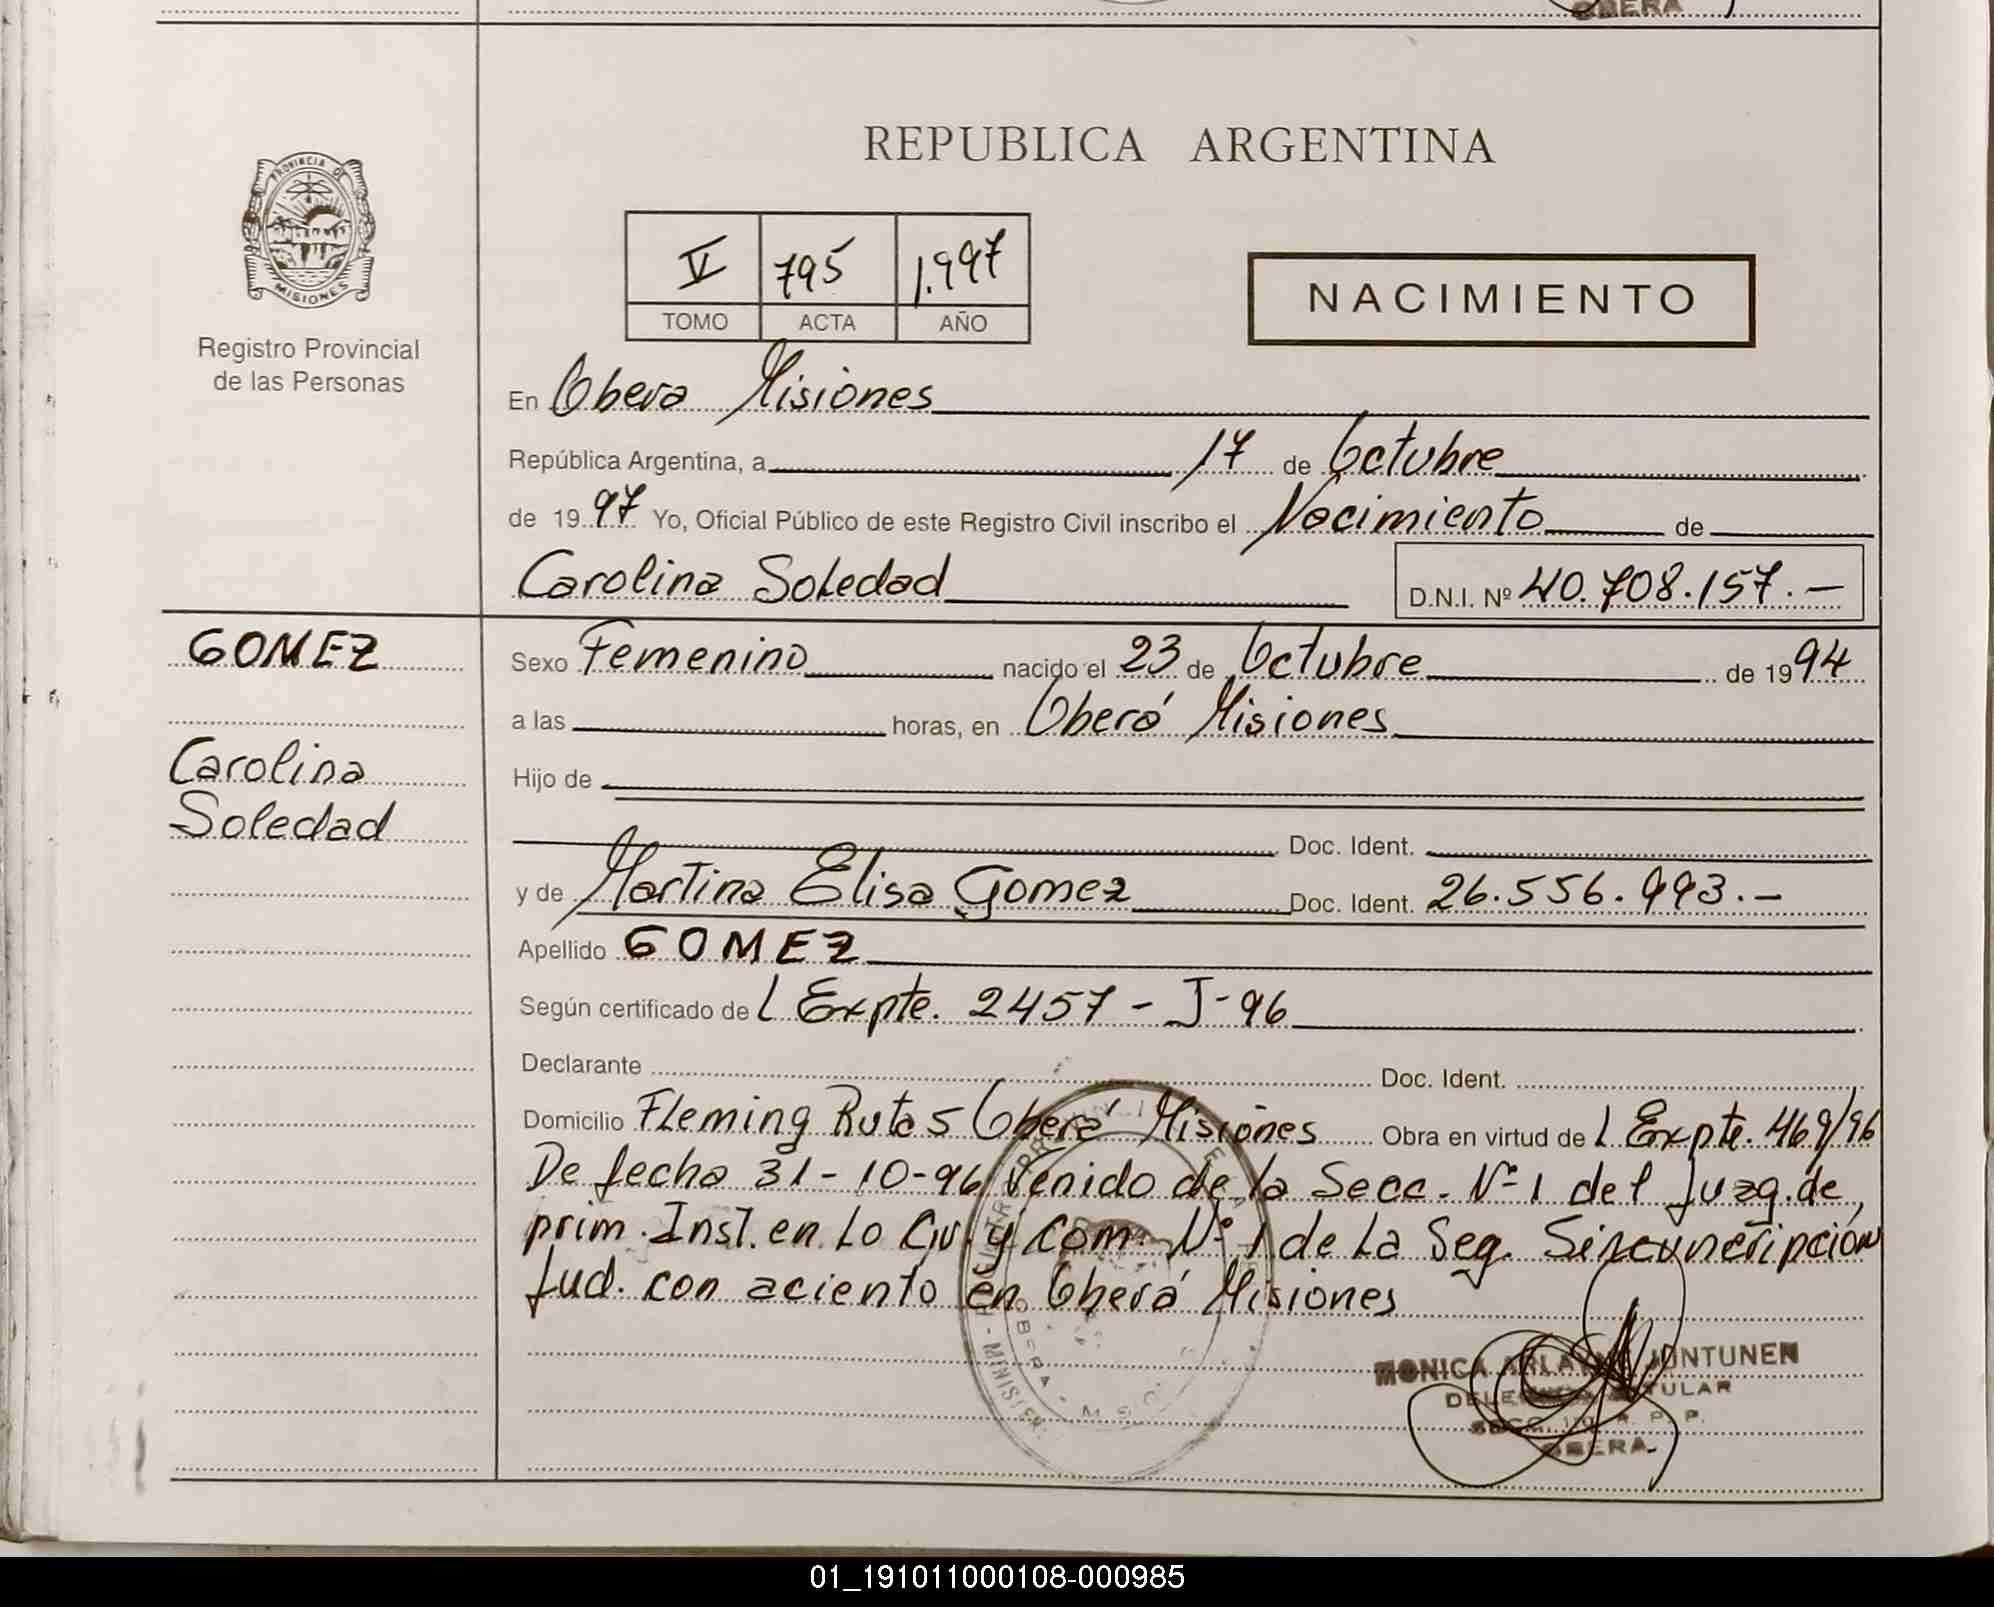 OBERA
PROVINCIA DE
MISIONES
Registro Provincial
de las Personas
REPUBLICA ARGENTINA
V 795 1.997
TOMO ACTA AÑO
NACIMIENTO
En Obera Misiones
República Argentina, a 17 de Octubre
de 19 97 Yo, Oficial Público de este Registro Civil inscribo el Nacimiento de
Carolina Soledad D.N.I. Nº 40.708.157.-
GOMEZ
Carolina
Soledad
Sexo Femenino nacido el 23 de Octubre de 19 94
a las horas, en Oberá Misiones
Hijo de
Doc. Ident.
y de Martina Elisa Gomez Doc. Ident. 26.556.993.-
Apellido GOMEZ
Según certificado de L Expte. 2457 - J-96
Declarante Doc. Ident.
Domicilio Fleming Ruta 5 Oberá Misiones Obra en virtud de L Expte. 469/96
De fecha 31-10-96 Venido de la Secc. Nº 1 del Juzg. de
prim. Inst. en Lo Civ. y Com. Nº 1 de La Seg. Sircuncripción
Jud. con aciento en Oberá Misiones
MONICA JUNTUNEN
TITULAR
SECC. R. P. P.
OBERA
01_191011000108-000985